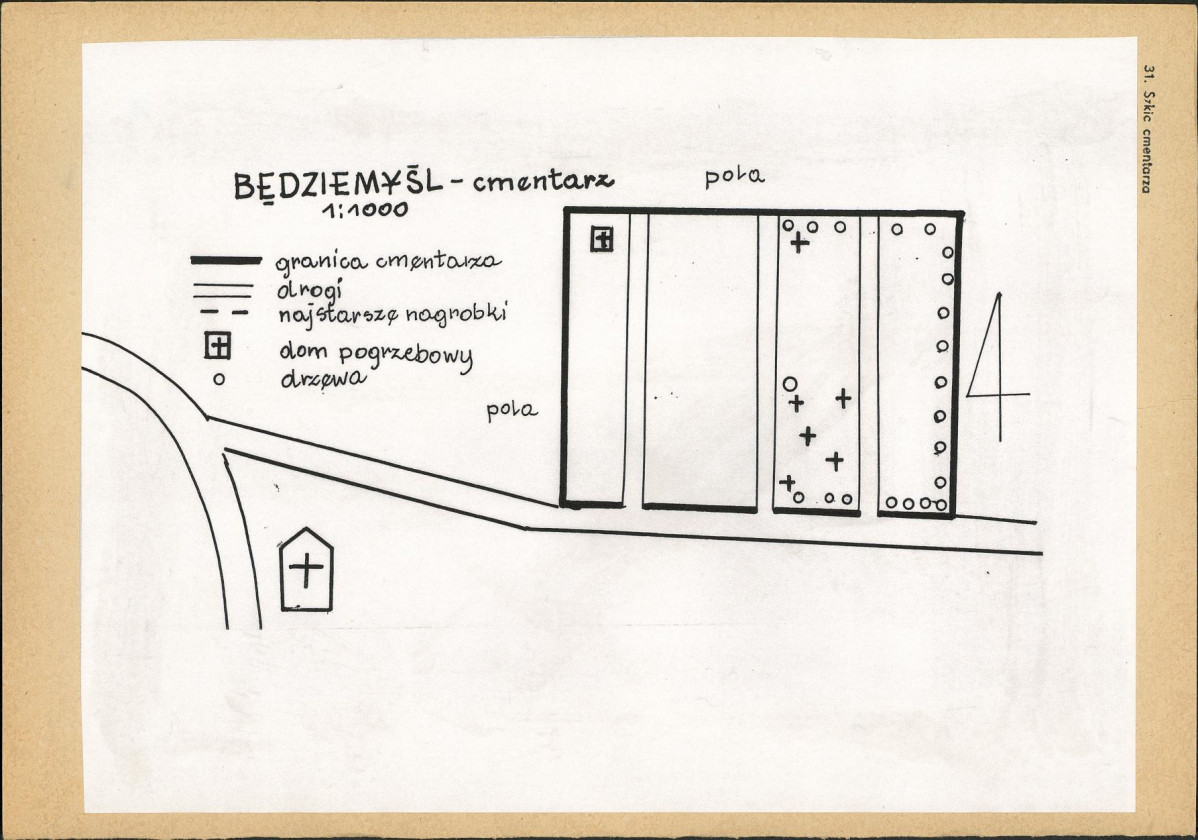 31. Szkic cmentarza
BĘDZIEMYŚL - cmentarz
1:1000
pola
granica cmentarza
drogi
najstarsze nagrobki
dom pogrzebowy
drzewa
pola